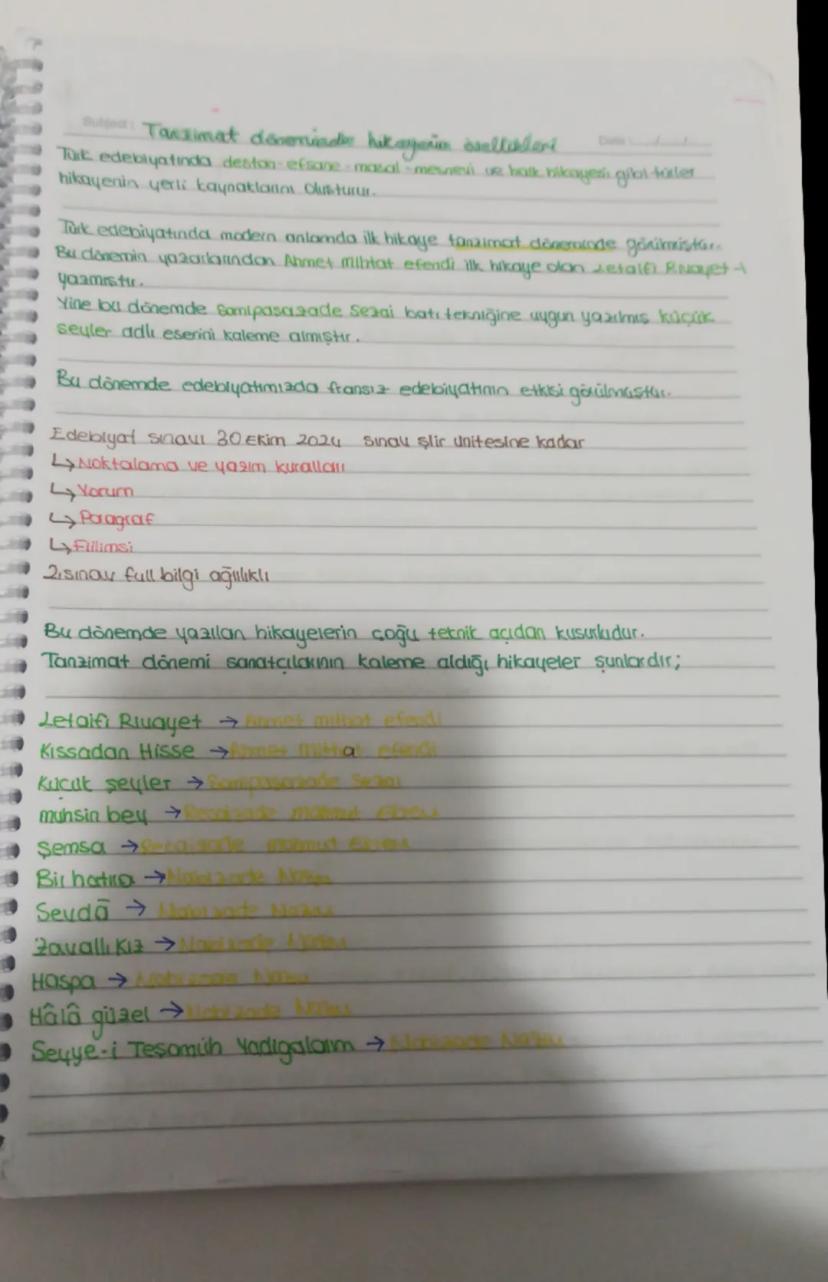 Subject: Tanzimat döneminde hikayenin özellikleri Date: ..../..../....
Türk edebiyatında destan-efsane-masal-mesnevi ve halk hikayesi gibi türler
hikayenin yerli kaynaklarını oluşturur.
Türk edebiyatında modern anlamda ilk hikaye tanzimat döneminde görülmüştür.
Bu dönemin yazarlarından Ahmet Mihtat efendi ilk hikaye olan Letaifi Rivayet-i
yazmıştır.
Yine bu dönemde Samipaşazade Sezai batı tekniğine uygun yazılmış küçük
şeyler adlı eserini kaleme almıştır.
Bu dönemde edebiyatımızda fransız edebiyatının etkisi görülmüştür.
Edebiyat sınavı 30 Ekim 2024 sınav şiir ünitesine kadar
↳Noktalama ve yazım kuralları
↳Yorum
↳Paragraf
↳Fiilimsi
2.sınav full bilgi ağırlıklı
Bu dönemde yazılan hikayelerin çoğu teknik açıdan kusurludur.
Tanzimat dönemi sanatçılarının kaleme aldığı hikayeler şunlardır;
Letaifi Rivayet → Ahmet mithat efendi
Kıssadan Hisse → Ahmet mithat efendi
Küçük şeyler → Samipaşazade Sezai
muhsin bey → Recaizade mahmut Ekrem
Şemsa → Recaizade mahmut Ekrem
Bir hatıra → Nabizade Nazım
Sevdâ → Nabizade Nazım
Zavallı Kız → Nabizade Nazım
Haspa → Nabizade Nazım
Hâlâ güzel → Nabizade Nazım
Seyye-i Tesamüh Yadigalarım → Nabizade Nazım